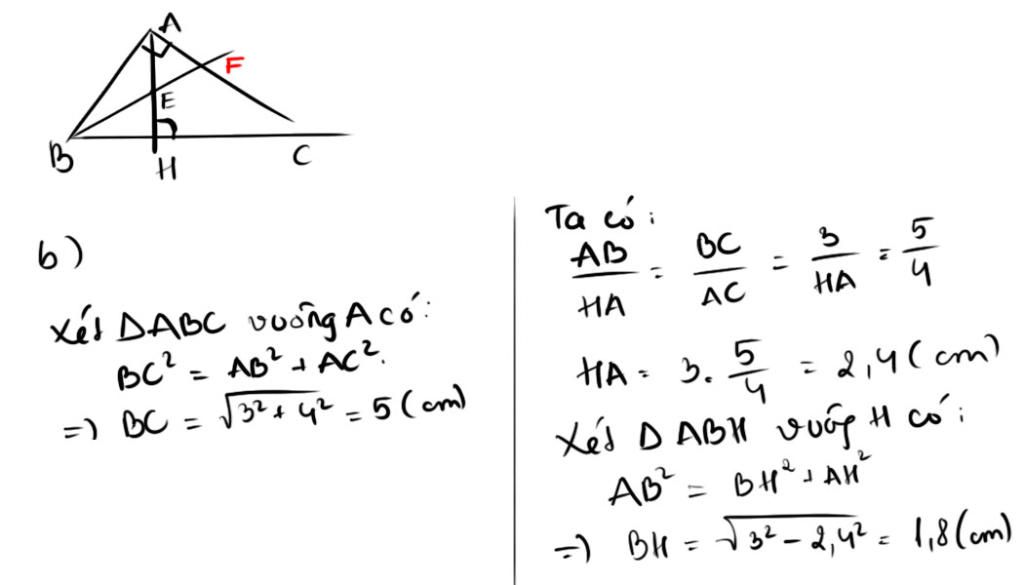 A
F
E
B
H
C
b)
Xét ΔABC vuông A có:
BC² = AB² + AC².
=> BC = √(3² + 4²) = 5 (cm)
Ta có:
AB/HA = BC/AC = 3/HA = 5/4
HA = 3 . 5/4 = 2,4 (cm)
Xét Δ ABH vuông H có:
AB² = BH² + AH²
=> BH = √(3² - 2,4²) = 1,8 (cm)